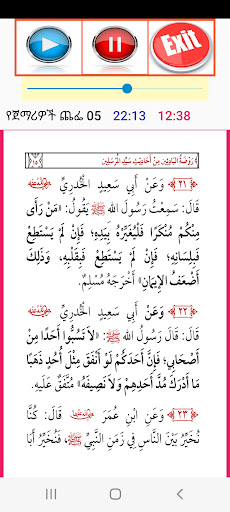 Exit
የጀማሪዎች ጨፌ 05 22:13 12:38
رَوْضَةُ الْبَادِئِينَ مِنْ أَحَادِيثِ سَيِّدِ الْمُرْسَلِينَ
﴿٢١﴾ وَعَنْ أَبِي سَعِيدٍ الْخُدْرِيِّ
قَالَ: سَمِعْتُ رَسُولَ اللهِ ﷺ يَقُولُ: «مَنْ رَأَى
مِنْكُمْ مُنْكَرًا فَلْيُغَيِّرْهُ بِيَدِهِ؛ فَإِنْ لَمْ يَسْتَطِعْ
فَبِلِسَانِهِ؛ فَإِنْ لَمْ يَسْتَطِعْ فَبِقَلْبِهِ، وَذَلِكَ
أَضْعَفُ الْإِيمَانِ» أَخْرَجَهُ مُسْلِمٌ.
﴿٢٢﴾ وَعَنْ أَبِي سَعِيدٍ الْخُدْرِيِّ
قَالَ: قَالَ رَسُولُ اللهِ ﷺ: «لَا تَسُبُّوا أَحَدًا مِنْ
أَصْحَابِي؛ فَإِنَّ أَحَدَكُمْ لَوْ أَنْفَقَ مِثْلَ أُحُدٍ ذَهَبًا
مَا أَدْرَكَ مُدَّ أَحَدِهِمْ وَلَا نَصِيفَهُ» مُتَّفَقٌ عَلَيْهِ.
﴿٢٣﴾ وَعَنِ ابْنِ عُمَرَ قَالَ: كُنَّا
نُخَيِّرُ بَيْنَ النَّاسِ فِي زَمَنِ النَّبِيِّ ﷺ، فَنُخَيِّرُ أَبَا